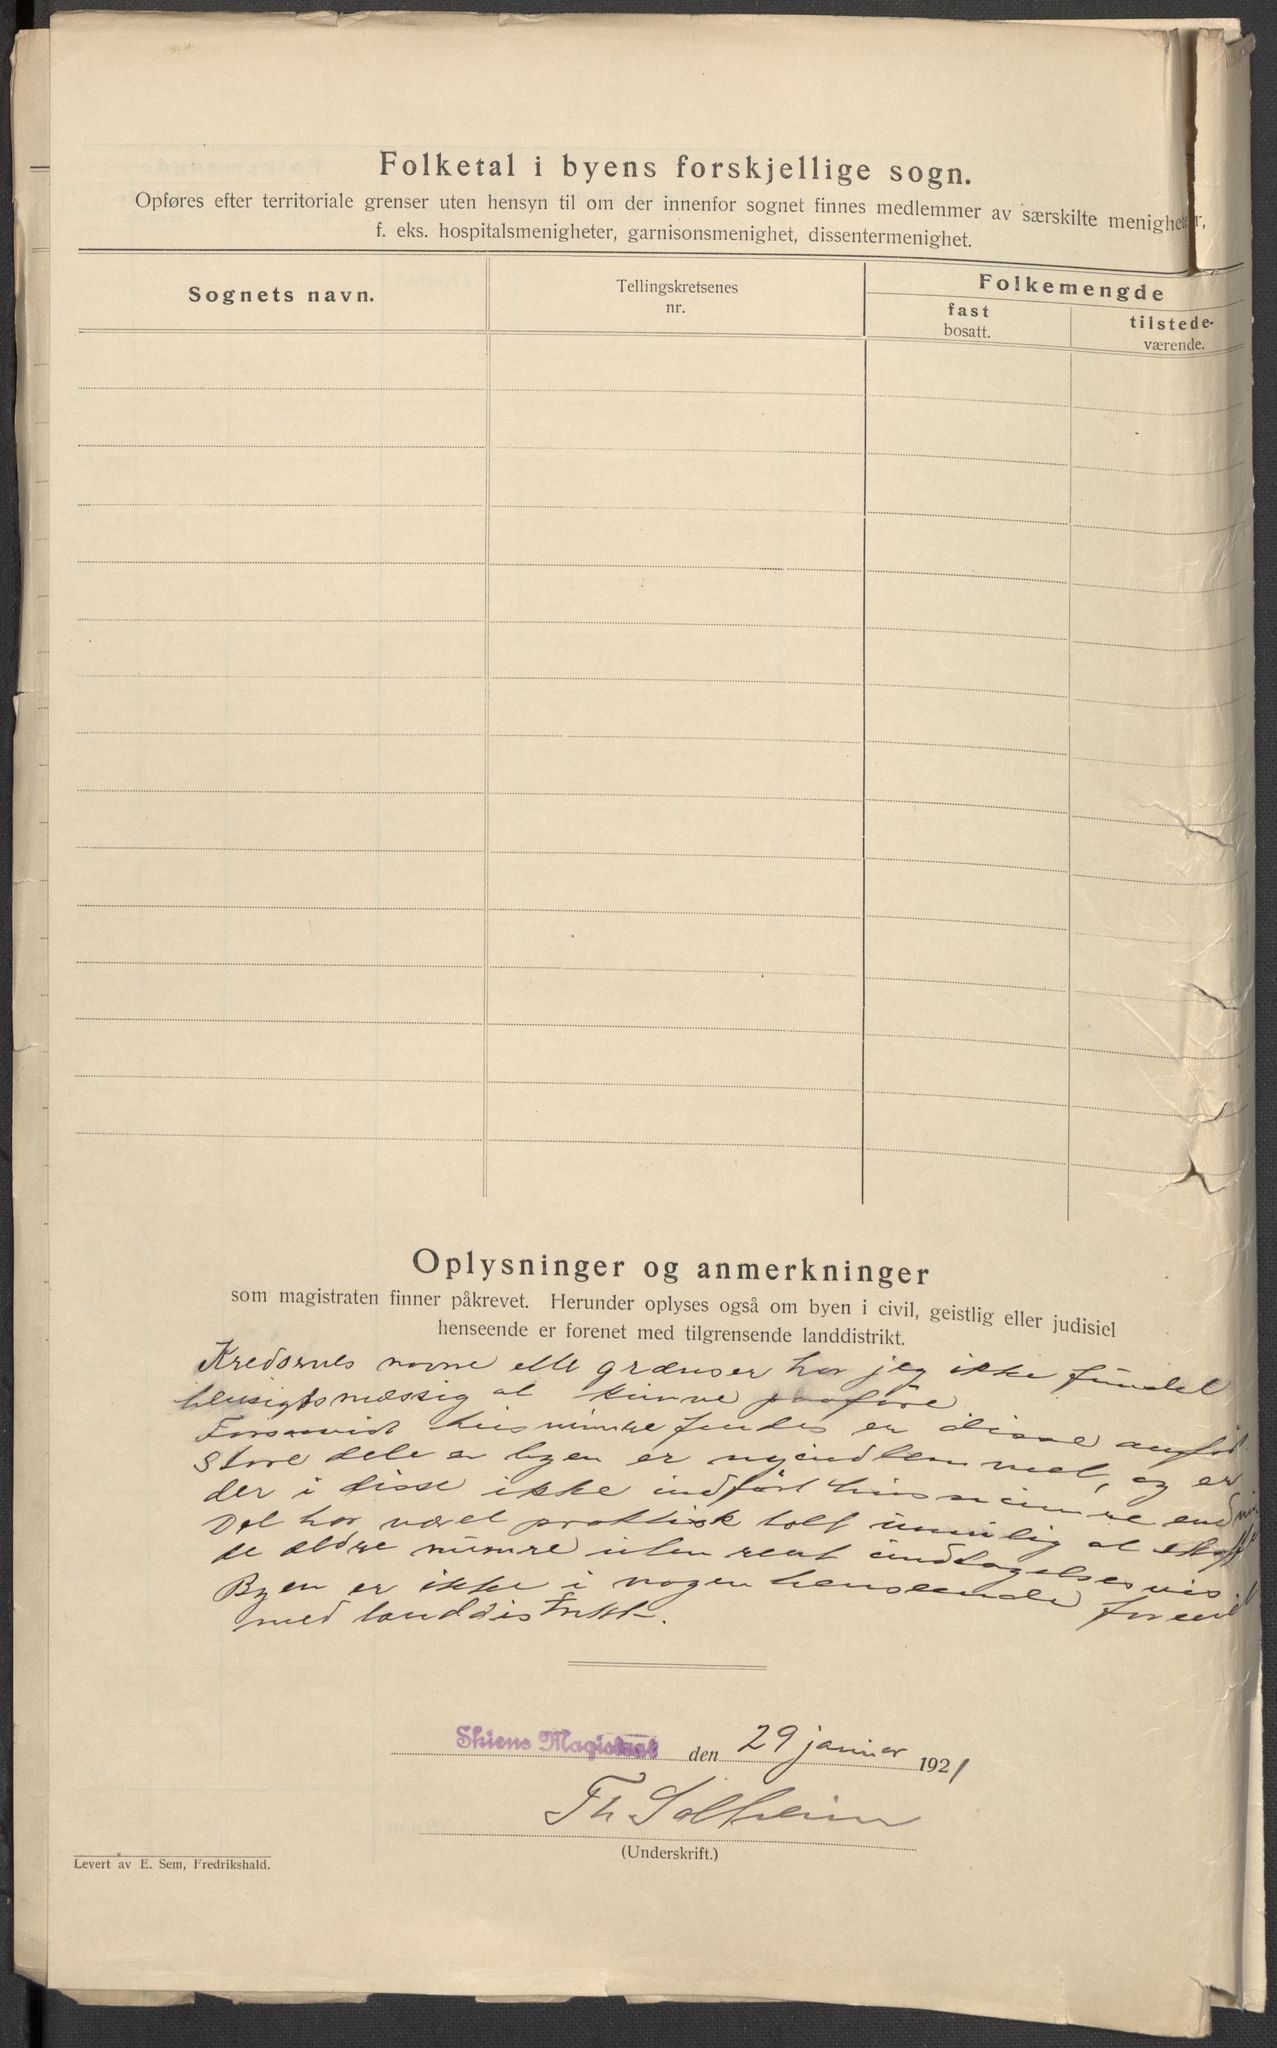 Folketal i byens forskjellige sogn.
Opføres efter territoriale grenser uten hensyn til om der innenfor sognet finnes medlemmer av særskilte menigheter,
f. eks. hospitalsmenigheter, garnisonsmenighet, dissentermenighet.
Sognets navn.
Tellingskretsenes
nr.
Folkemengde
fast
bosatt.
tilstede-
værende.
Oplysninger og anmerkninger
som magistraten finner påkrevet. Herunder oplyses også om byen i civil, geistlig eller judisiel
henseende er forenet med tilgrensende landdistrikt.
Kredsenes navne grænser har jeg ikke fundet
hensigtsmæssig at kunne
Forsaavidt husnumre findes er disse anført.
Store dele av byen er nyindlemmet, og er
der i disse ikke indført husnumre
Det har været praktisk talt umulig at
de ældre numre uten rent undtagelsesvis.
Byen er ikke i nogen henseende forenet
med landdistrikt.
Skiens Magistrat den 29 januar 1921
Th Solheim
(Underskrift.)
Levert av E. Sem, Fredrikshald.